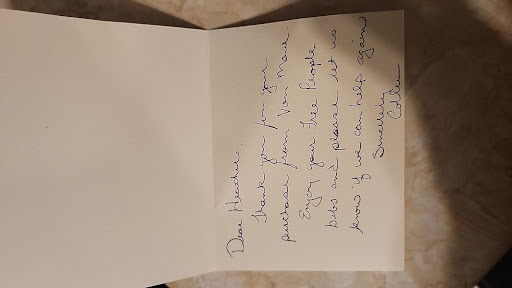 Dear Heather,
Thank you for your
purchase from Von Maur.
Enjoy your Free People
bibs and please let us
know if we can help again
Sincerely